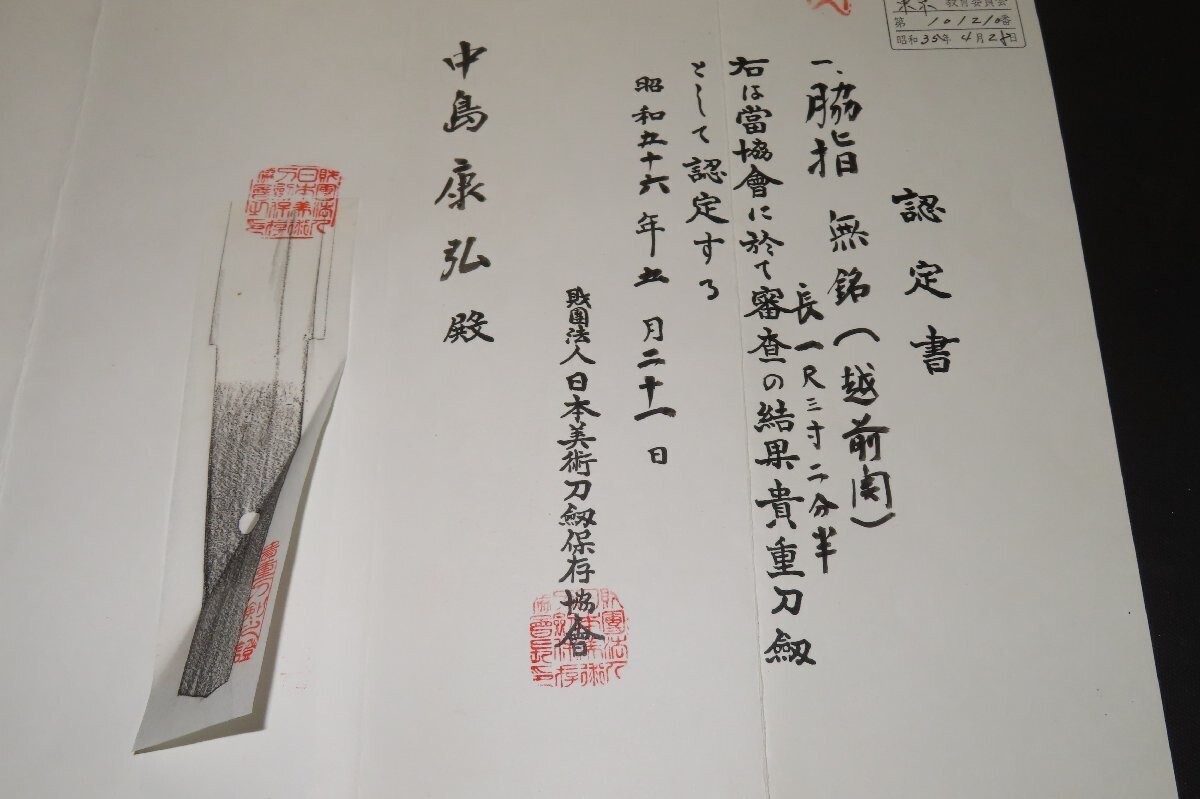 教育委員会
第101210番
昭和35年4月28日
認定書
一、脇指 無銘（越前関）
長一尺三寸二分半
右は當協會に於て審査の結果貴重刀劔
として認定する
昭和五十六年五月二十一日
財團法人日本美術刀劔保存協會
中島康弘殿